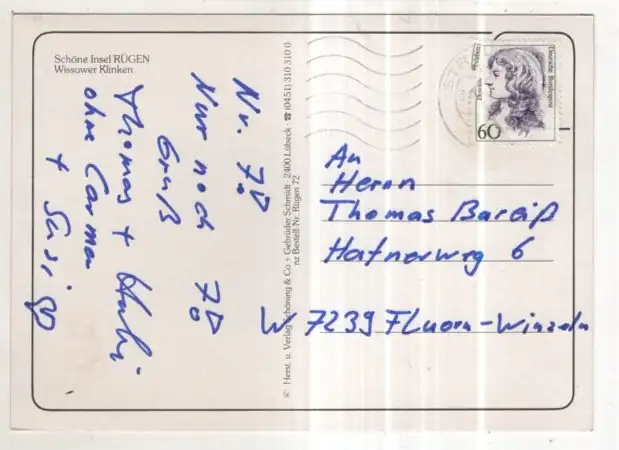 Schöne Insel RÜGEN
Wissower Klinken
Nr. 7?
Nur noch 7?
Gruß
Thomas +
ohne Carmen
+ Susi
© Herst. u. Verlag Schöning & Co + Gebrüder Schmidt · 2400 Lübeck · ☎ (0451) 310 310 0
nz Bestell-Nr. Rügen 72
Deutsche Bundespost
60
An
Herrn
Thomas Bareiß
Hafnerweg 6
W 7239 Fluorn-Winzeln